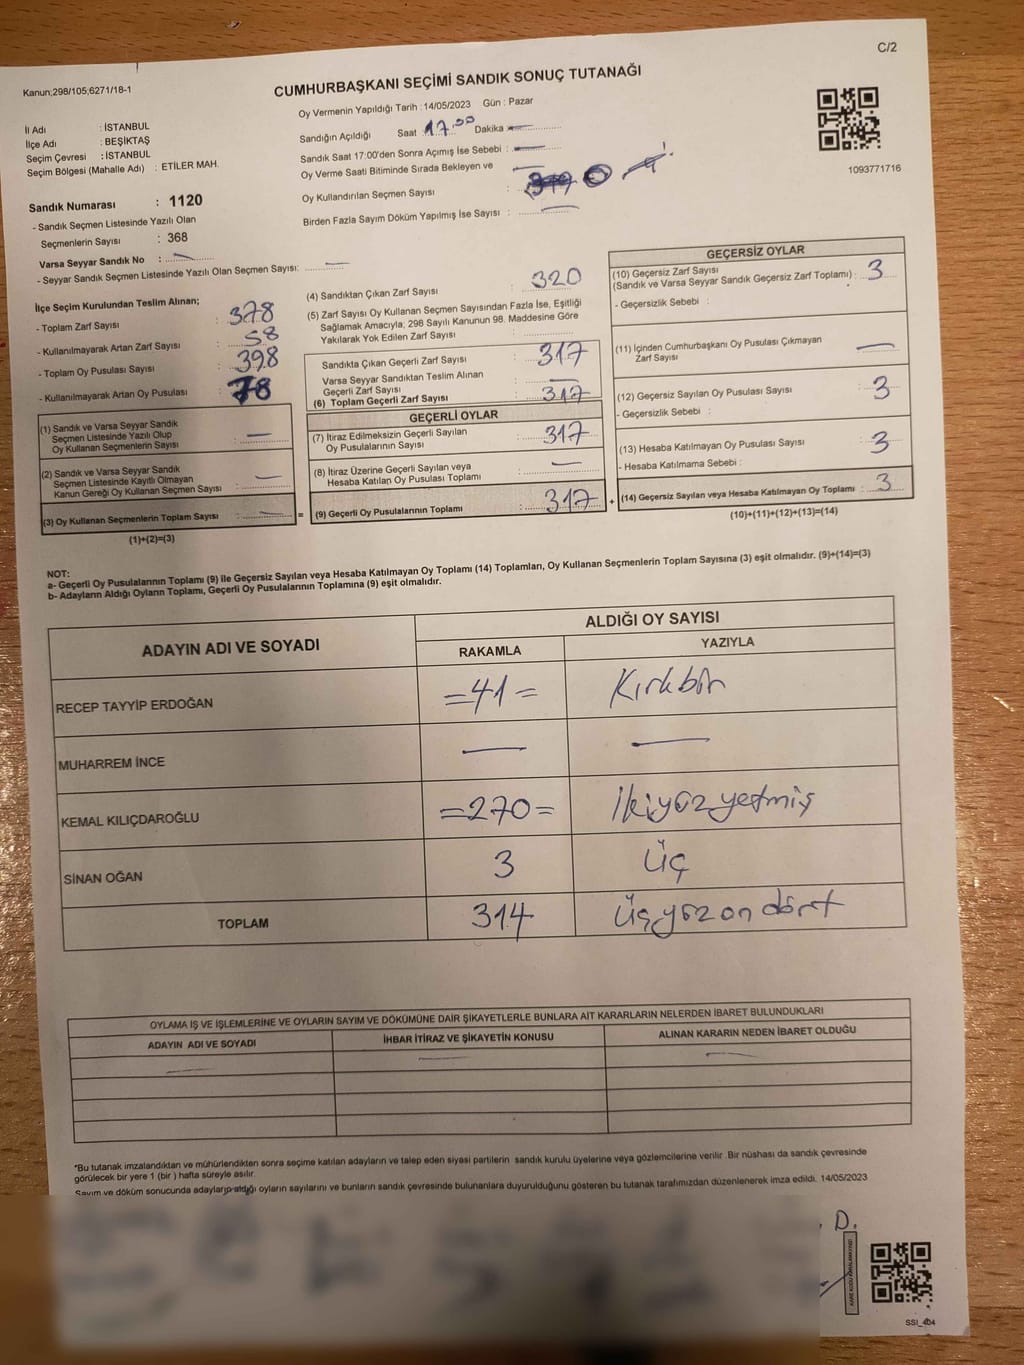 C/2
Kanun;298/105;6271/18-1
CUMHURBAŞKANI SEÇİMİ SANDIK SONUÇ TUTANAĞI
Oy Vermenin Yapıldığı Tarih : 14/05/2023 Gün : Pazar
İl Adı : İSTANBUL
İlçe Adı : BEŞİKTAŞ
Seçim Çevresi : İSTANBUL
Seçim Bölgesi (Mahalle Adı) : ETİLER MAH.
Sandığın Açıldığı Saat : 17.00 Dakika : —
Sandık Saat 17:00'den Sonra Açımış İse Sebebi : —
Oy Verme Saati Bitiminde Sırada Bekleyen ve
Oy Kullandırılan Seçmen Sayısı : 0
Birden Fazla Sayım Döküm Yapılmış İse Sayısı : —
1093771716
Sandık Numarası : 1120
- Sandık Seçmen Listesinde Yazılı Olan
Seçmenlerin Sayısı : 368
Varsa Seyyar Sandık No : —
- Seyyar Sandık Seçmen Listesinde Yazılı Olan Seçmen Sayısı: —
İlçe Seçim Kurulundan Teslim Alınan;
- Toplam Zarf Sayısı : 378
- Kullanılmayarak Artan Zarf Sayısı : 58
- Toplam Oy Pusulası Sayısı : 398
- Kullanılmayarak Artan Oy Pusulası : 78
(1) Sandık ve Varsa Seyyar Sandık
Seçmen Listesinde Yazılı Olup
Oy Kullanan Seçmenlerin Sayısı : —
(2) Sandık ve Varsa Seyyar Sandık
Seçmen Listesinde Kayıtlı Olmayan
Kanun Gereği Oy Kullanan Seçmen Sayısı : —
(3) Oy Kullanan Seçmenlerin Toplam Sayısı : — =
(1)+(2)=(3)
(4) Sandıktan Çıkan Zarf Sayısı : 320
(5) Zarf Sayısı Oy Kullanan Seçmen Sayısından Fazla İse, Eşitliği
Sağlamak Amacıyla, 298 Sayılı Kanunun 98. Maddesine Göre
Yakılarak Yok Edilen Zarf Sayısı :
Sandıkta Çıkan Geçerli Zarf Sayısı : 317
Varsa Seyyar Sandıktan Teslim Alınan
Geçerli Zarf Sayısı : —
(6) Toplam Geçerli Zarf Sayısı : 317
GEÇERLİ OYLAR
(7) İtiraz Edilmeksizin Geçerli Sayılan
Oy Pusulalarının Sayısı : 317
(8) İtiraz Üzerine Geçerli Sayılan veya
Hesaba Katılan Oy Pusulası Toplamı : —
(9) Geçerli Oy Pusulalarının Toplamı : 317 +
GEÇERSİZ OYLAR
(10) Geçersiz Zarf Sayısı
(Sandık ve Varsa Seyyar Sandık Geçersiz Zarf Toplamı) : 3
- Geçersizlik Sebebi :
(11) İçinden Cumhurbaşkanı Oy Pusulası Çıkmayan
Zarf Sayısı : —
(12) Geçersiz Sayılan Oy Pusulası Sayısı : 3
- Geçersizlik Sebebi :
(13) Hesaba Katılmayan Oy Pusulası Sayısı : 3
- Hesaba Katılmama Sebebi :
(14) Geçersiz Sayılan veya Hesaba Katılmayan Oy Toplamı : 3
(10)+(11)+(12)+(13)=(14)
NOT:
a- Geçerli Oy Pusulalarının Toplamı (9) ile Geçersiz Sayılan veya Hesaba Katılmayan Oy Toplamı (14) Toplamları, Oy Kullanan Seçmenlerin Toplam Sayısına (3) eşit olmalıdır. (9)+(14)=(3)
b- Adayların Aldığı Oyların Toplamı, Geçerli Oy Pusulalarının Toplamına (9) eşit olmalıdır.
ADAYIN ADI VE SOYADI
ALDIĞI OY SAYISI
RAKAMLA YAZIYLA
RECEP TAYYİP ERDOĞAN =41= Kırkbir
MUHARREM İNCE — —
KEMAL KILIÇDAROĞLU =270= İkiyüzyetmiş
SİNAN OĞAN 3 üç
TOPLAM 314 üçyüzondört
OYLAMA İŞ VE İŞLEMLERİNE VE OYLARIN SAYIM VE DÖKÜMÜNE DAİR ŞİKAYETLERLE BUNLARA AİT KARARLARIN NELERDEN İBARET BULUNDUKLARI
ADAYIN ADI VE SOYADI İHBAR İTİRAZ VE ŞİKAYETİN KONUSU ALINAN KARARIN NEDEN İBARET OLDUĞU
— — —
*Bu tutanak imzalandıktan ve mühürlendikten sonra seçime katılan adayların ve talep eden siyasi partilerin sandık kurulu üyelerine veya gözlemcilerine verilir. Bir nüshası da sandık çevresinde
görülecek bir yere 1 (bir ) hafta süreyle asılır.
Sayım ve döküm sonucunda adayların aldığı oyların sayılarını ve bunların sandık çevresinde bulunanlara duyurulduğunu gösteren bu tutanak tarafımızdan düzenlenerek imza edildi. 14/05/2023
D.